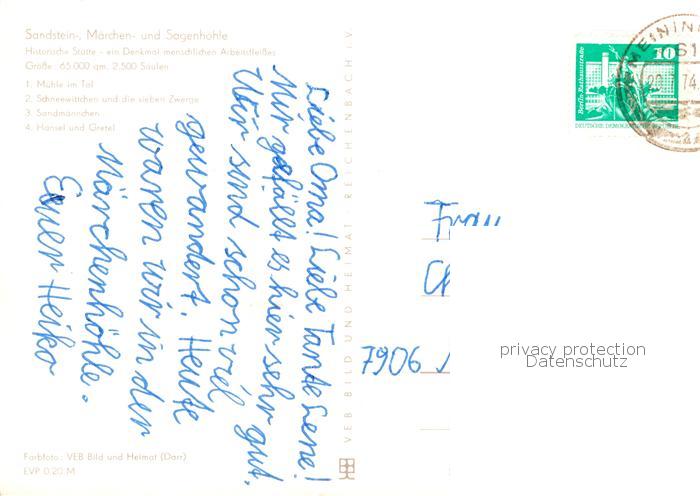 Sandstein-, Märchen- und Sagenhöhle
Historische Stätte - ein Denkmal menschlichen Arbeitsfleißes
Größe: 65.000 qm, 2.500 Säulen
1. Mühle im Tal
2. Schneewittchen und die sieben Zwerge
3. Sandmännchen
4. Hänsel und Gretel
Liebe Oma! Liebe Tante Lene!
Mir gefällt es hier sehr gut.
Wir sind schon viel
gewandert. Heute
waren wir in der
Märchenhöhle.
Euer Heiko
Farbfoto: VEB Bild und Heimat (Darr)
EVP 0,20 M
VEB BILD UND HEIMAT · REICHENBACH i. V.
Berlin-Rathausstraße
10
DEUTSCHE DEMOKRATISCHE
MEININ
74
Frau
7906
privacy protection
Datenschutz